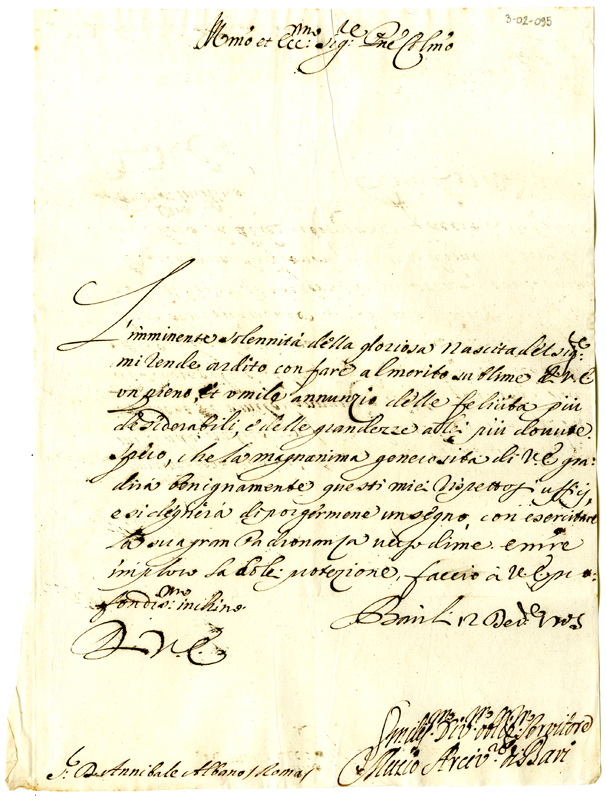 3-02-095
Illmo et Ecc:mo Sig:re Pne Colmo
L'imminente solennità della gloriosa Nascita del Sig:re
mi rende ardito con fare al merito sublime di V.E.
un pieno, et umile annunzio delle felicità più
desiderabili, e delle grandezze a lei più dovute.
Spero, che la magnanima generosità di V.E. gra=
dirà benignamente questi miei rispettosi uffici,
e si degnerà di porgermene un segno, con esercitare
la sua gran Padronanza verso di me. e mre
imploro la di lei protezione, faccio à V.E. pro=
fondis:mo inchino.
Bari 12 Dec:re 1705
D. V. E.
Umiliss:mo Div:mo Obb:mo Servitore
Muzio Arciv:o di Bari
S.r D. Annibale Albano / Roma /